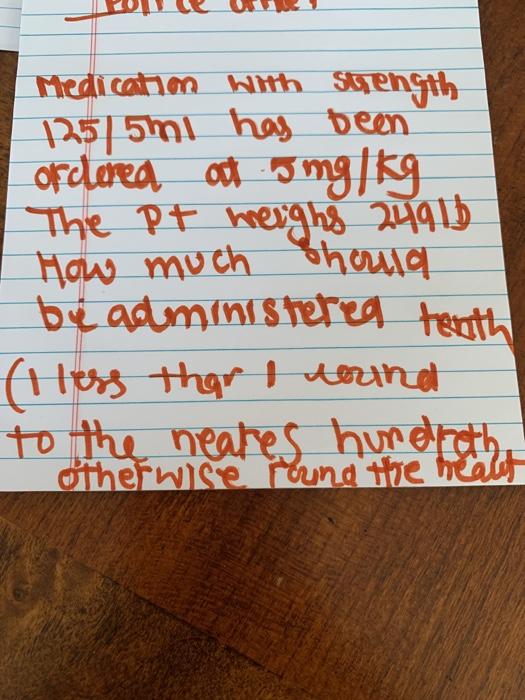 Police officer
Medication with strength
125/5ml has been
ordered at .5mg/kg
The Pt weighs 249lb
How much should
be administered tenth
(I less than 1 round
to the neares hundreth
otherwise round the neast